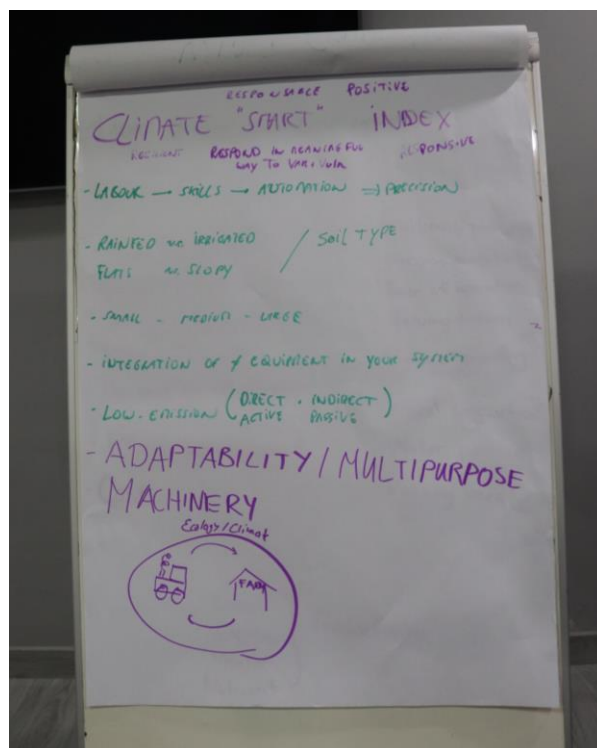 RESPONSIBLE POSITIVE
CLIMATE "SMART" INDEX
RESPOND IN MEANINGFUL RESPONSIVE
WAY TO
- LABOUR → SKILLS → AUTOMATION ⇒ PRECISION
- RAINFED vs IRRIGATED / SOIL TYPE
FLATS vs SLOPY
- SMALL - MEDIUM - LARGE
- INTEGRATION OF EQUIPMENT IN YOUR SYSTEM
- LOW-EMISSION (DIRECT . INDIRECT)
ACTIVE PASSIVE
- ADAPTABILITY / MULTIPURPOSE
MACHINERY
Ecology/Climat
FARM